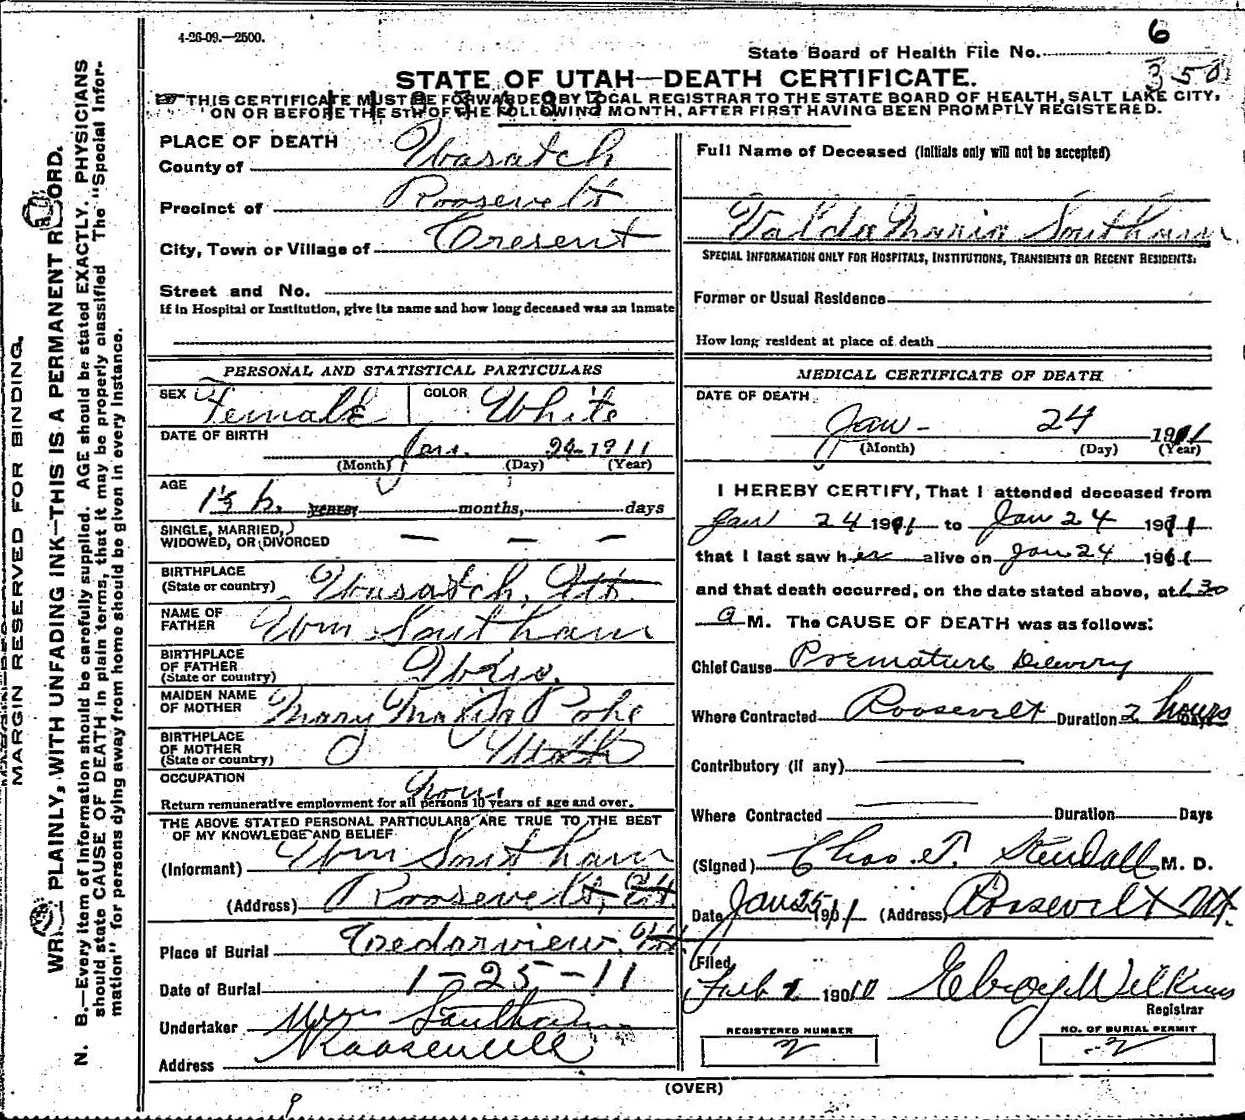 4-26-09.—2500.
State Board of Health File No. 6
350
STATE OF UTAH—DEATH CERTIFICATE.
THIS CERTIFICATE MUST BE FORWARDED BY LOCAL REGISTRAR TO THE STATE BOARD OF HEALTH, SALT LAKE CITY,
ON OR BEFORE THE 5TH OF THE FOLLOWING MONTH, AFTER FIRST HAVING BEEN PROMPTLY REGISTERED.
MARGIN RESERVED FOR BINDING.
WRITE PLAINLY, WITH UNFADING INK—THIS IS A PERMANENT RECORD.
N. B.—Every item of information should be carefully supplied. AGE should be stated EXACTLY. PHYSICIANS
should state CAUSE OF DEATH in plain terms, that it may be properly classified The "Special Infor-
mation" for persons dying away from home should be given in every instance.
PLACE OF DEATH
County of Wasatch
Precinct of Roosevelt
City, Town or Village of Cresent
Street and No.
If in Hospital or Institution, give its name and how long deceased was an Inmate
PERSONAL AND STATISTICAL PARTICULARS
SEX Female COLOR White
DATE OF BIRTH Jan. 24-1911
(Month) (Day) (Year)
AGE h. years months, days
SINGLE, MARRIED,
WIDOWED, OR DIVORCED — — —
BIRTHPLACE
(State or country) Wasatch, Ut.
NAME OF
FATHER Wm Southam
BIRTHPLACE
OF FATHER
(State or country)
MAIDEN NAME
OF MOTHER Mary
BIRTHPLACE
OF MOTHER
(State or country) Utah
OCCUPATION None
Return remunerative employment for all persons 10 years of age and over.
THE ABOVE STATED PERSONAL PARTICULARS ARE TRUE TO THE BEST
OF MY KNOWLEDGE AND BELIEF
(Informant) Wm Southam
(Address) Roosevelt, Ut.
Place of Burial Cedarview, Ut.
Date of Burial 1-25-11
Undertaker Southam
Address Roosevelt
Full Name of Deceased (Initials only will not be accepted)
Valda Maria Southam
SPECIAL INFORMATION ONLY FOR HOSPITALS, INSTITUTIONS, TRANSIENTS OR RECENT RESIDENTS:
Former or Usual Residence
How long resident at place of death
MEDICAL CERTIFICATE OF DEATH
DATE OF DEATH
Jan- 24 1911
(Month) (Day) (Year)
I HEREBY CERTIFY, That I attended deceased from
Jan 24 1911 to Jan 24 1911
that I last saw her alive on Jan 24 1911
and that death occurred, on the date stated above, at 1.30
a M. The CAUSE OF DEATH was as follows:
Chief Cause Premature Delivery
Where Contracted Roosevelt Duration 2 hours
Contributory (if any)
Where Contracted Duration Days
(Signed) Chas. T. Kendall M. D.
Date Jan 25 1911 (Address) Roosevelt Ut.
Filed
Feb 1910 Wilkins
Registrar
REGISTERED NUMBER
2
NO. OF BURIAL PERMIT
2
(OVER)